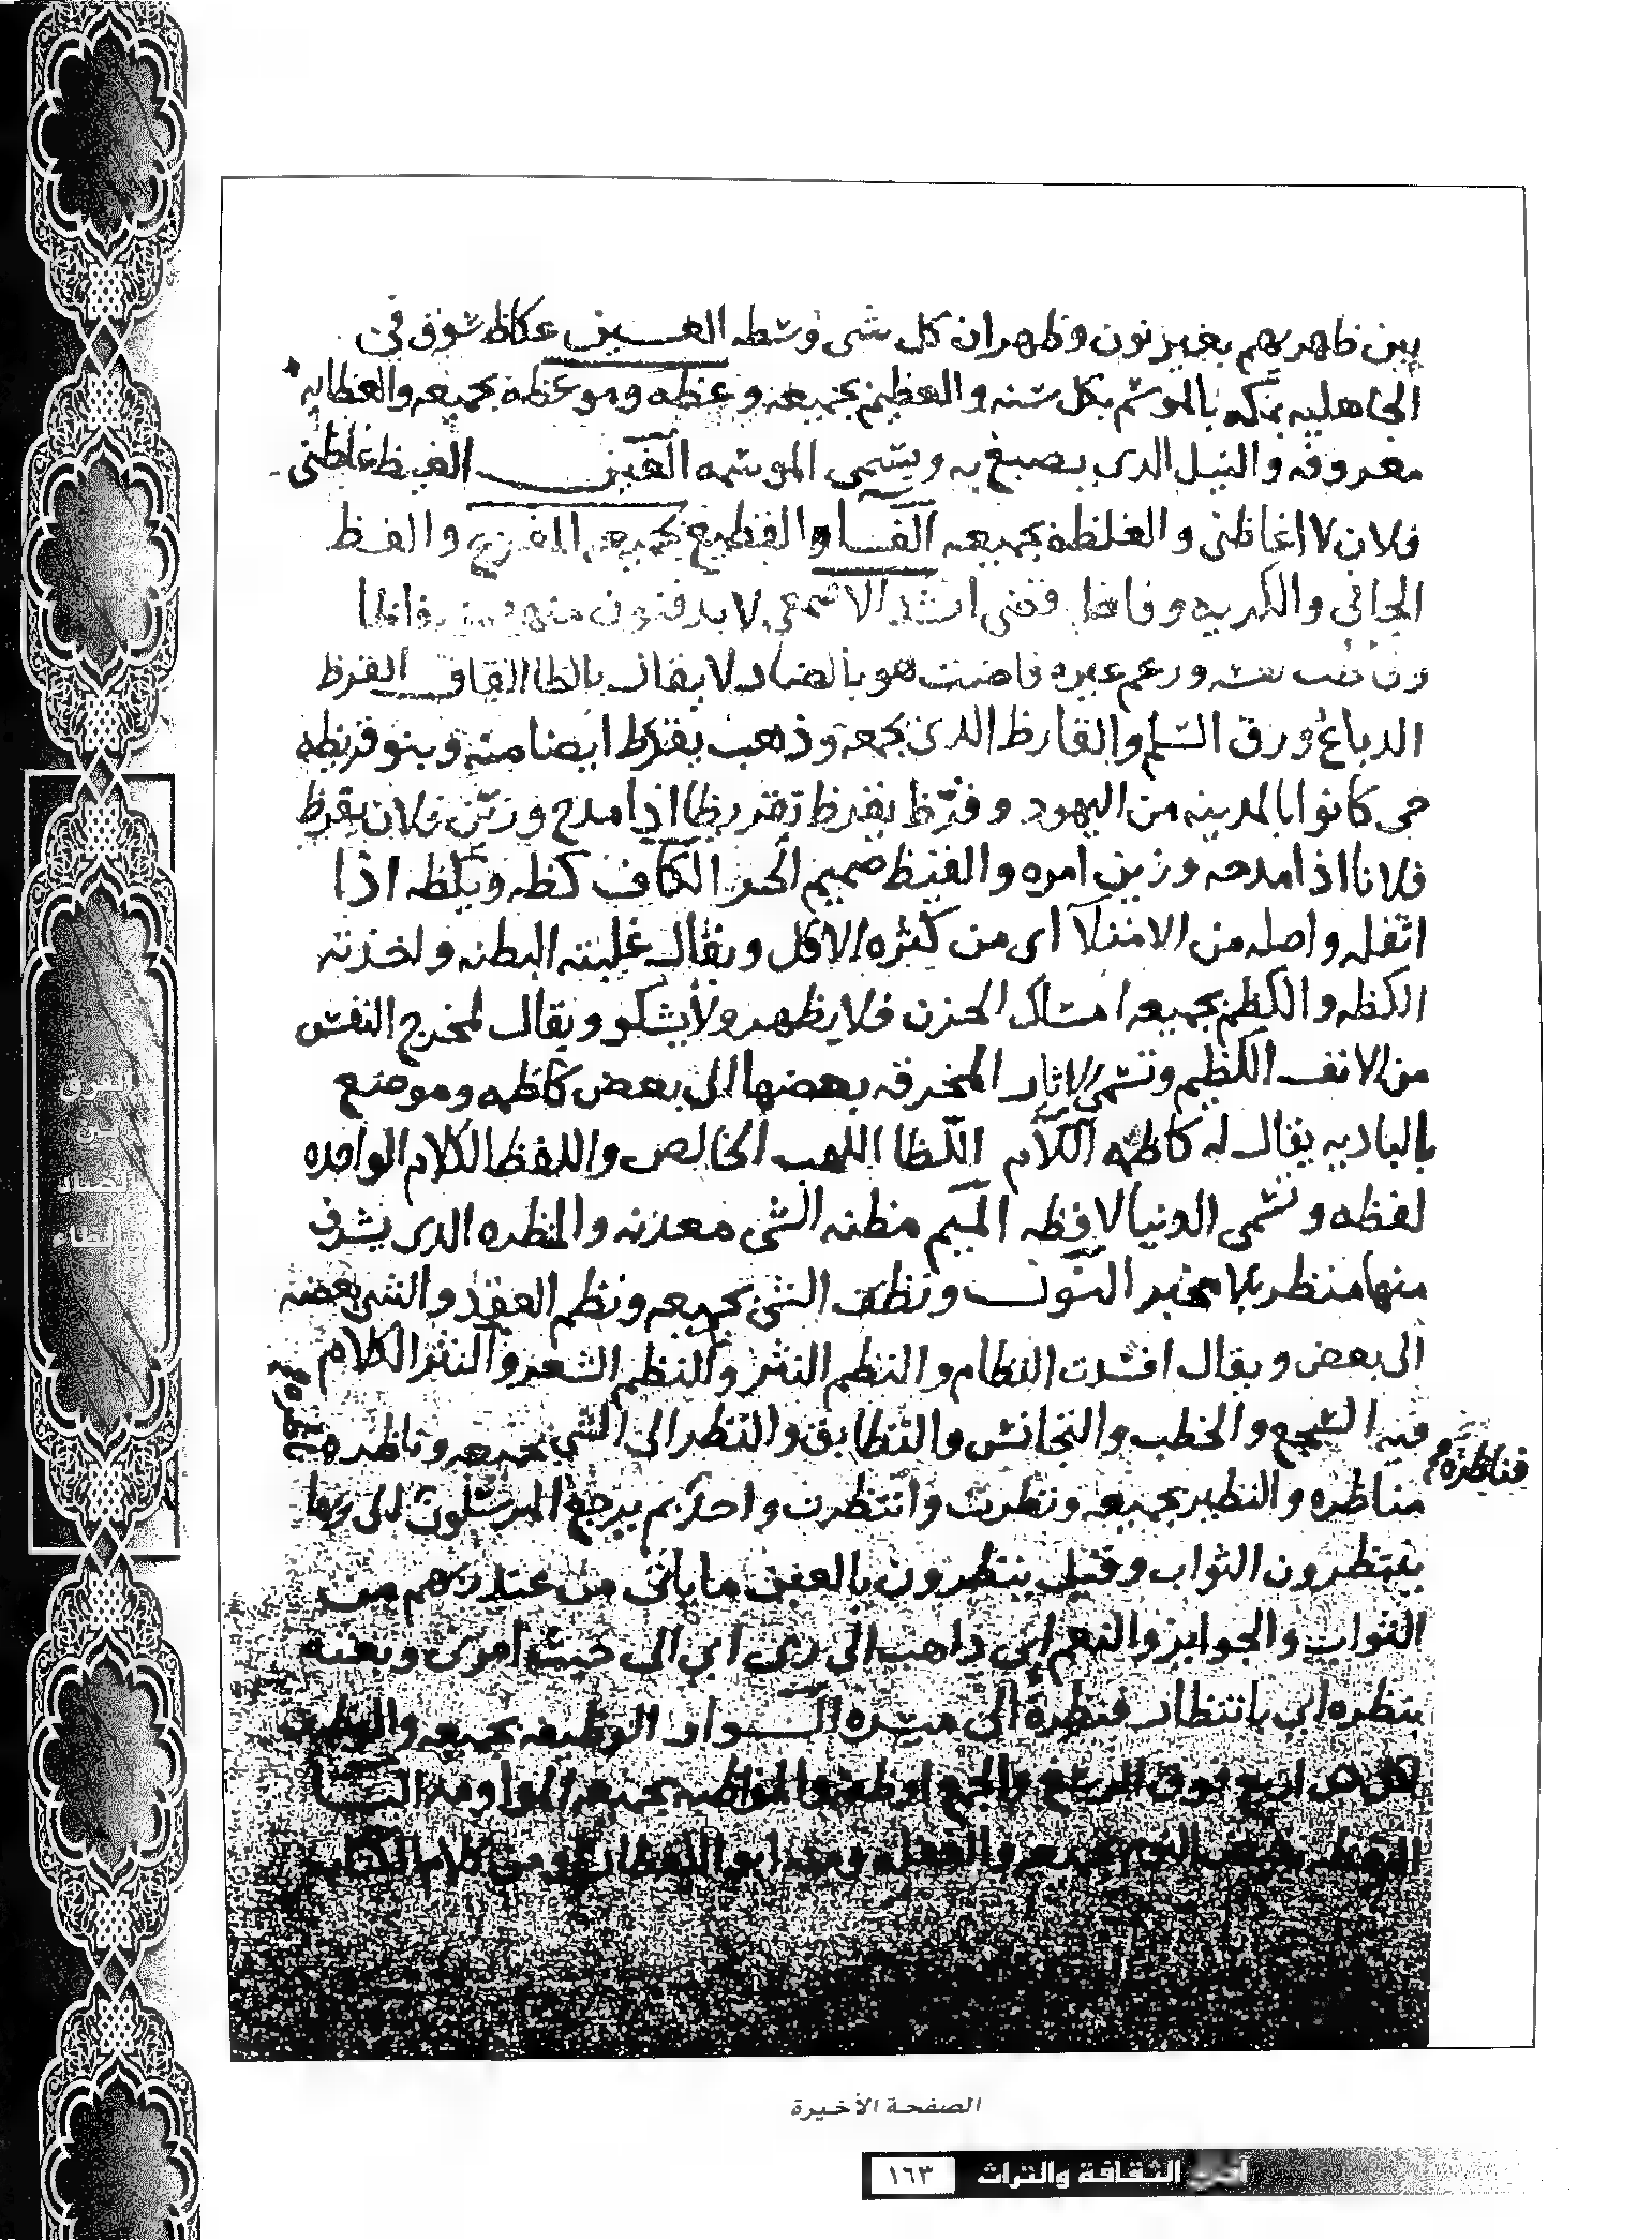 بين ظاهريهم بغير نون وظهران كل شي وسطه العين عكاظ سوق في
الجاهليه بمكه بالموسم بكل سنه والعظيم بجميعه وعظه وموعظه بجميعه والعظايه
معروفه والنيل الدى يصبغ به ويسمى الوسمه الغين الغيظ غاظني
فلان لا اغاظني والغلظه بجميعه الفا والفظيع بجميعه المفزع والفظ
الجافي والكريه وفاظ قضى انشد الاصمعي لا يدفنون منهم من فاظا
نفسه وزعم غيره فاضت هو بالضاد لا يقال بالظا القاف القرظ
الدباغ ورق السلم والقارظ الدى يجمعه وذهب يقرظ ايضا منه وبنو قريظه
حي كانوا بالمدينه من اليهود وقرظ يقرظ تقريظا اذا مدح وزين فلان يقرظ
فلانا اذا مدحه وزين امره والقيظ صميم الحر الكاف كظه ويكظه اذا
اثقله واصله من الامتلآ اى من كثره الاكل ويقال غلبته البطنه واخذته
الكظه والكظم بجميعه امساك الحزن فلا يظهر ولا يشكو ويقال لمخرج النفس
من الانف الكظم وتسمى الابار المخرقه بعضها الى بعض كاظمه وموضع
بالباديه يقال له كاظمه اللام اللظا اللهب الخالص واللفظ الكلام الواحده
لفظه وتسمى الدنيا لافظه الميم مظنه الشي معدنه والمنظره الدى يشرف
منها منظر بلا مخبر النون ونظف الشي بجميعه ونظم العقد والشي بعضه
الى بعض ويقال افسدت النظام والنظم النثر والنظم الشعر والنثر الكلام
فيه السجع والخطب والتجانس والتطابق والنظر الى الشي بجميعه وناظره
فناظره
مناظره والنظير بجميعه ونظرت وانتظرت واحد بم يرجع المرسلون اى بما
ينتظرون الثواب وقيل ينظرون بالعين ما ياتي من عند ربهم من
الثواب والجوايز والنعم اني داهب الى ربى اي الى حيث امرنى وبعته
بنظره اي بانتظار فنظرة الى ميسره الواو الوظيفه بجميعه والوظيف
لكل دى اربع فوق الرسغ والجمع اوظفه والمواظبه بجميعه المداومه اليا
اليقظه نقيض النوم بجميعه
الصفحة الأخيرة
آفاق الثقافة والتراث ١٦٣
الفرق
بين
الضاد
والظاء